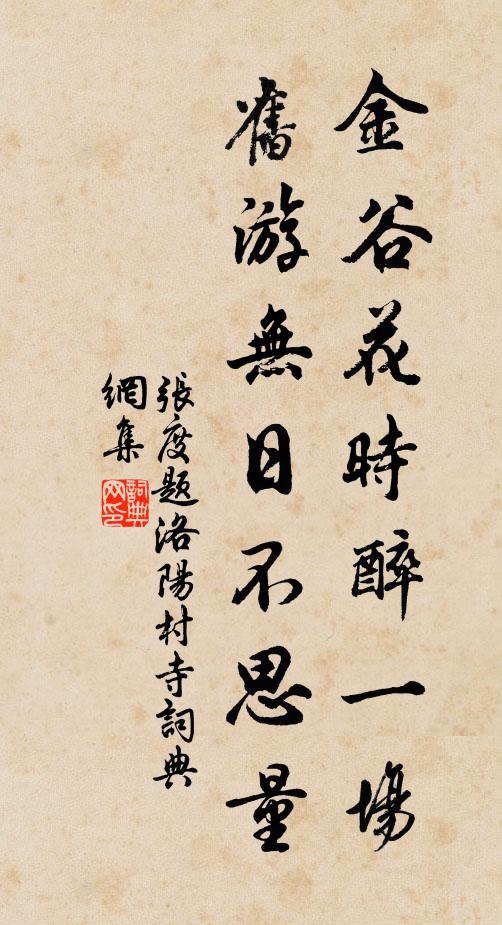 金谷花時醉一場
舊游無日不思量
張度题洛陽村寺詞典
網集
詞典
网印